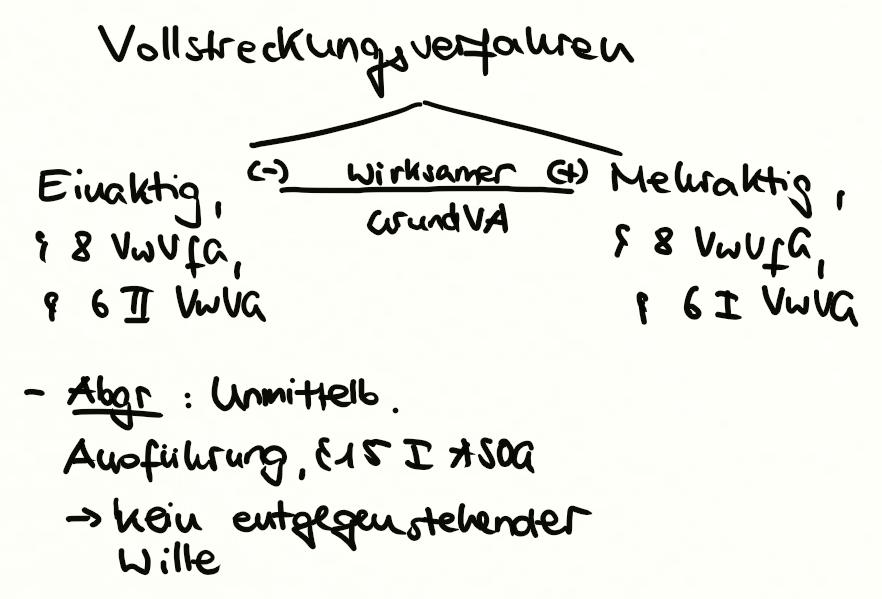 Vollstreckungsverfahren
(-) wirksamer (+)
GrundVA
Einaktig,
§ 8 VwVfG,
§ 6 II VwVG
Mehraktig,
§ 8 VwVfG,
§ 6 I VwVG
- Abgr : Unmittelb.
Ausführung, § 15 I ASOG
→ kein entgegenstehender
Wille